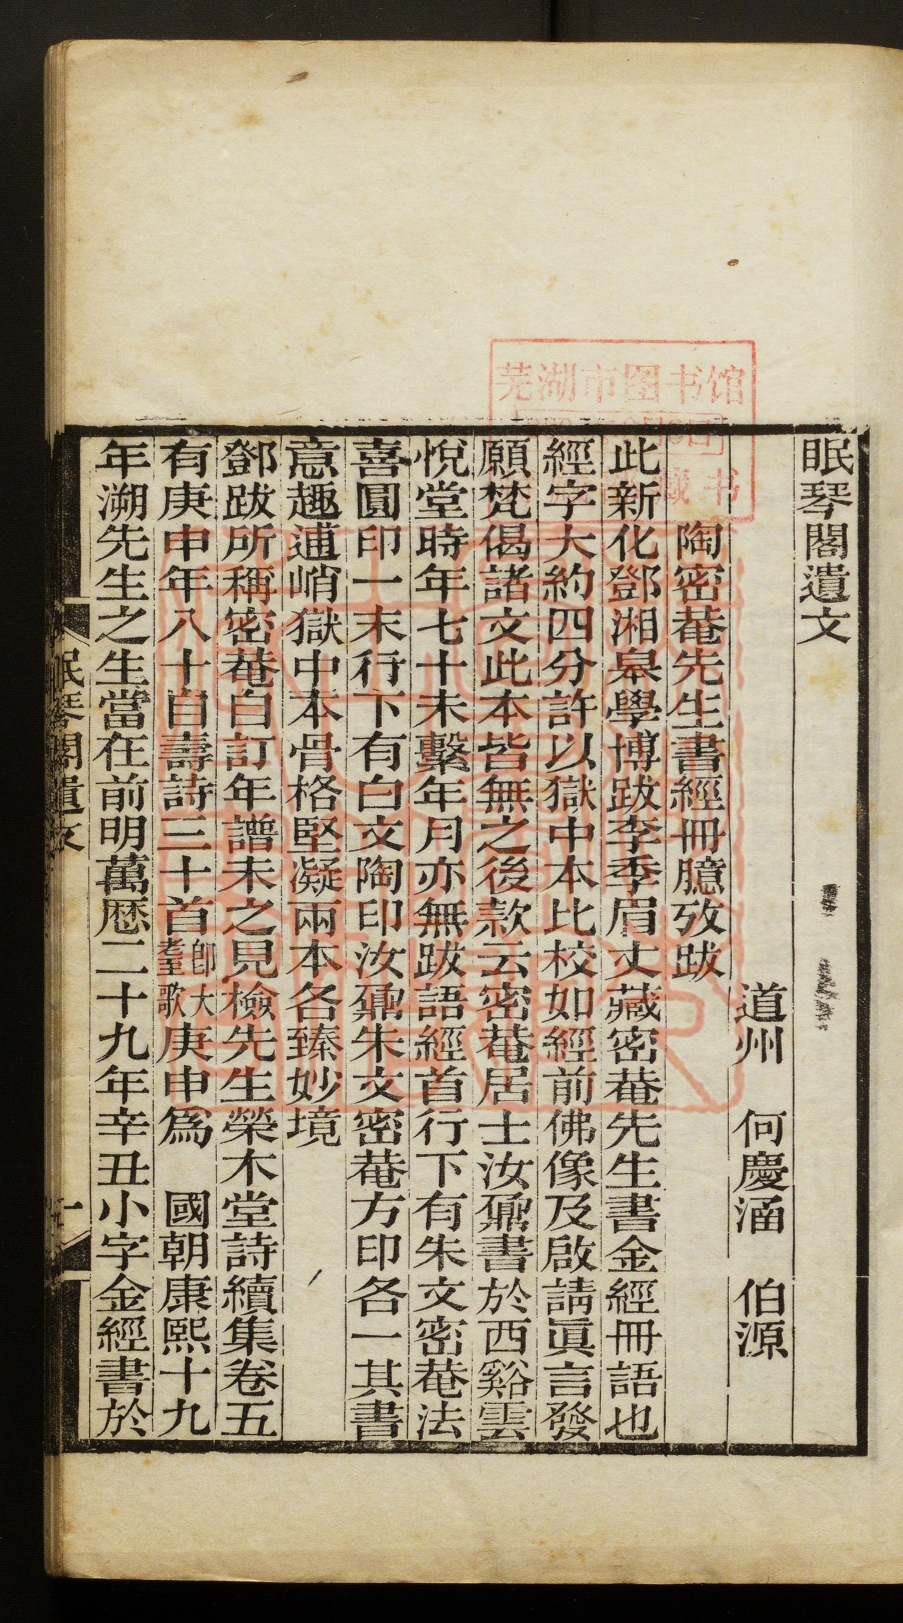 芜湖市图书馆
藏书
眠琴閣遺文
道州　何慶涵　伯源
陶密菴先生書經冊臆攷跋
此新化鄧湘皋學博跋李季眉丈藏密菴先生書金經冊語也
經字大約四分許以獄中本比校如經前佛像及啟請眞言發
願梵偈諸文此本皆無之後款云密菴居士汝鼐書於西谿雲
悅堂時年七十未繫年月亦無跋語經首行下有朱文密菴法
喜圓印一末行下有白文陶印汝鼐朱文密菴方印各一其書
意趣逋峭獄中本骨格堅凝兩本各臻妙境
鄧跋所稱密菴自訂年譜未之見檢先生榮木堂詩續集卷五
有庚申年八十自壽詩三十首卽大耋歌庚申爲　國朝康熙十九
年溯先生之生當在前明萬厯二十九年辛丑小字金經書於
眠琴閣遺文
一